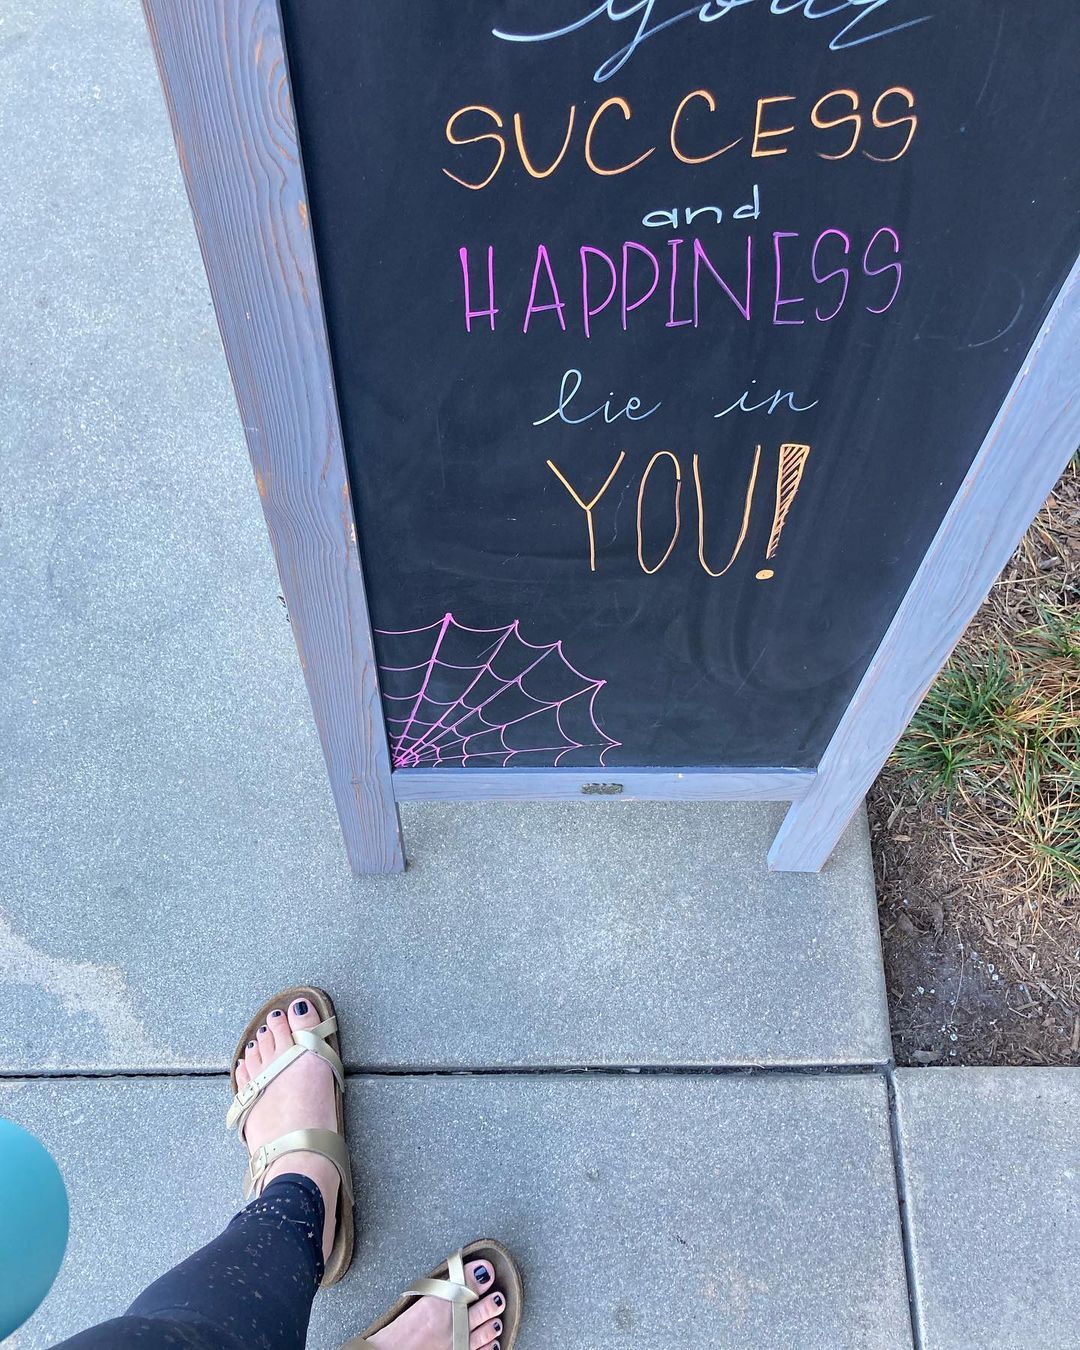 your
SUCCESS
and
HAPPINESS
lie in
YOU!